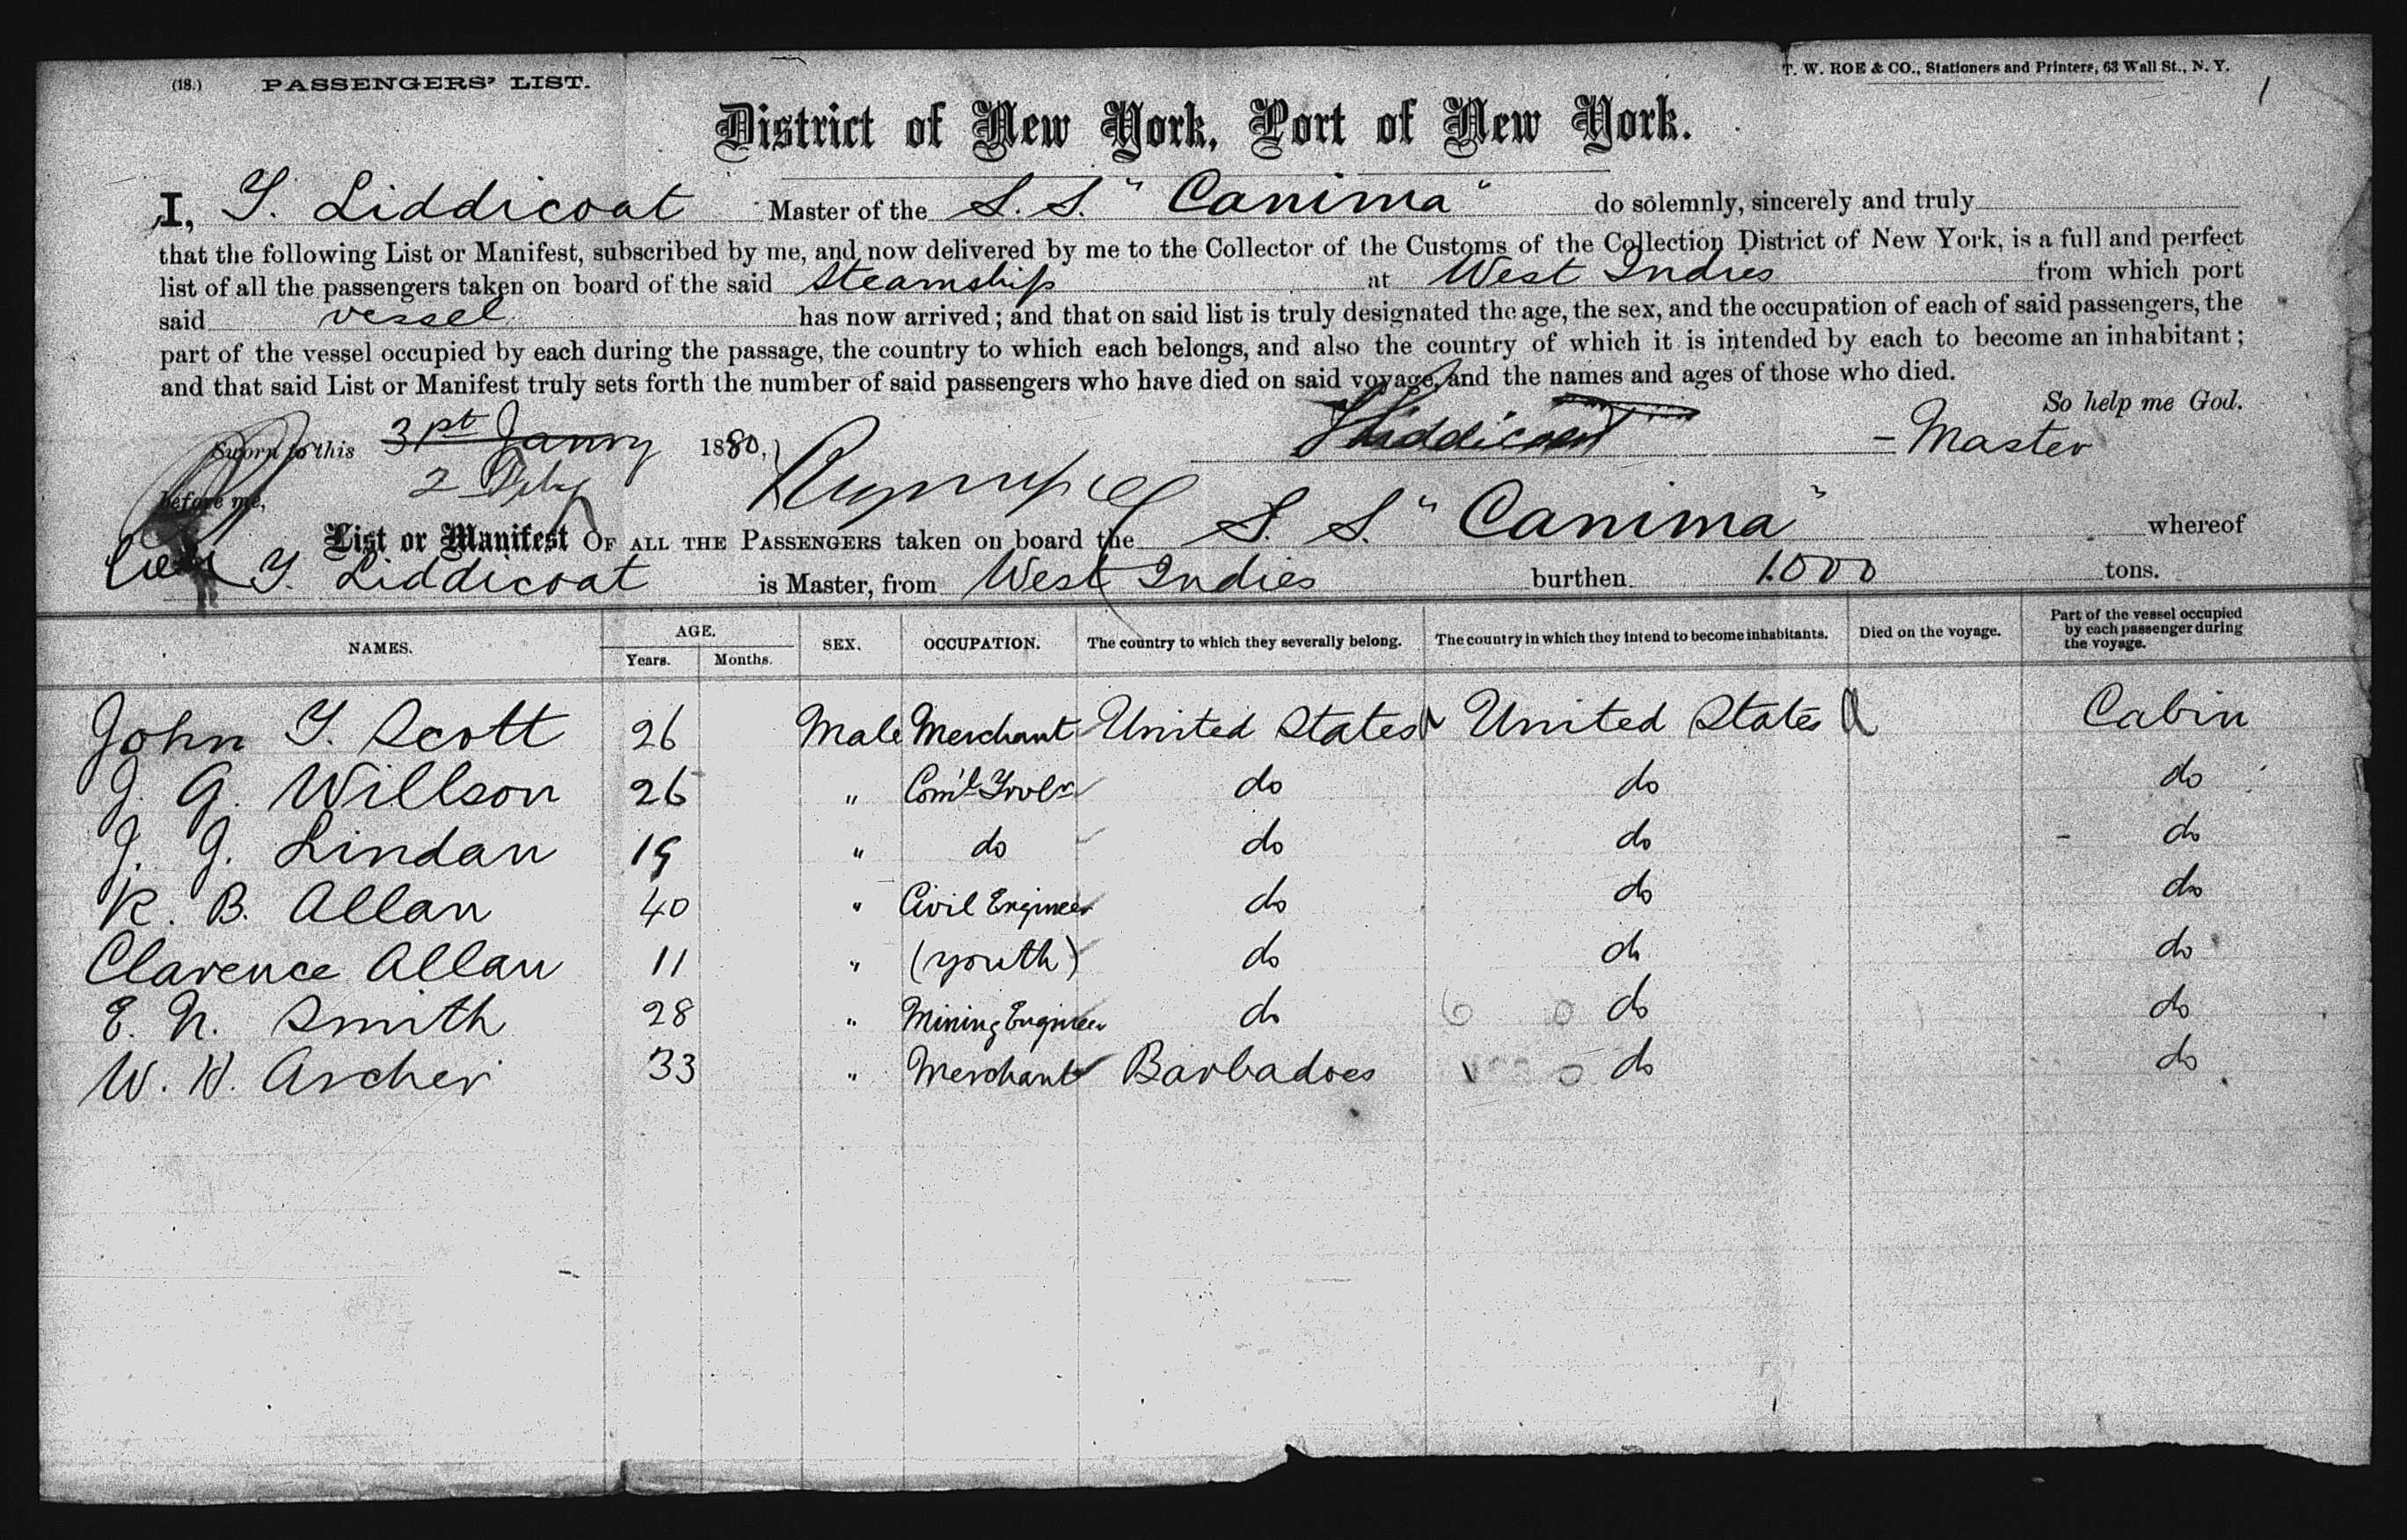 (18.) PASSENGERS' LIST. T. W. ROE & CO., Stationers and Printers, 63 Wall St., N. Y.
1
District of New York, Port of New York.
I, T. Liddicoat Master of the S. S. "Canima" do solemnly, sincerely and truly
that the following List or Manifest, subscribed by me, and now delivered by me to the Collector of the Customs of the Collection District of New York, is a full and perfect
list of all the passengers taken on board of the said Steamship at West Indies from which port
said vessel has now arrived; and that on said list is truly designated the age, the sex, and the occupation of each of said passengers, the
part of the vessel occupied by each during the passage, the country to which each belongs, and also the country of which it is intended by each to become an inhabitant;
and that said List or Manifest truly sets forth the number of said passengers who have died on said voyage, and the names and ages of those who died.
So help me God.
Sworn to this 31st Janry 1880, T Liddicoat - Master
2 Feby
before me,
List or Manifest OF ALL THE PASSENGERS taken on board the S. S. "Canima" whereof
T. Liddicoat is Master, from West Indies burthen 1.000 tons.
NAMES. AGE. Years. Months. SEX. OCCUPATION. The country to which they severally belong. The country in which they intend to become inhabitants. Died on the voyage. Part of the vessel occupied by each passenger during the voyage.
John T. Scott 26 Male Merchant United States United States Cabin
J. G. Willson 26 " Com'l Trvlr do do do
J. J. Lindau 19 " do do do do
R. B. Allan 40 " Civil Engineer do do do
Clarence Allan 11 " (youth) do do do
E. N. Smith 28 " Mining Engineer do do do
W. H. Archer 33 " Merchant Barbadoes do do